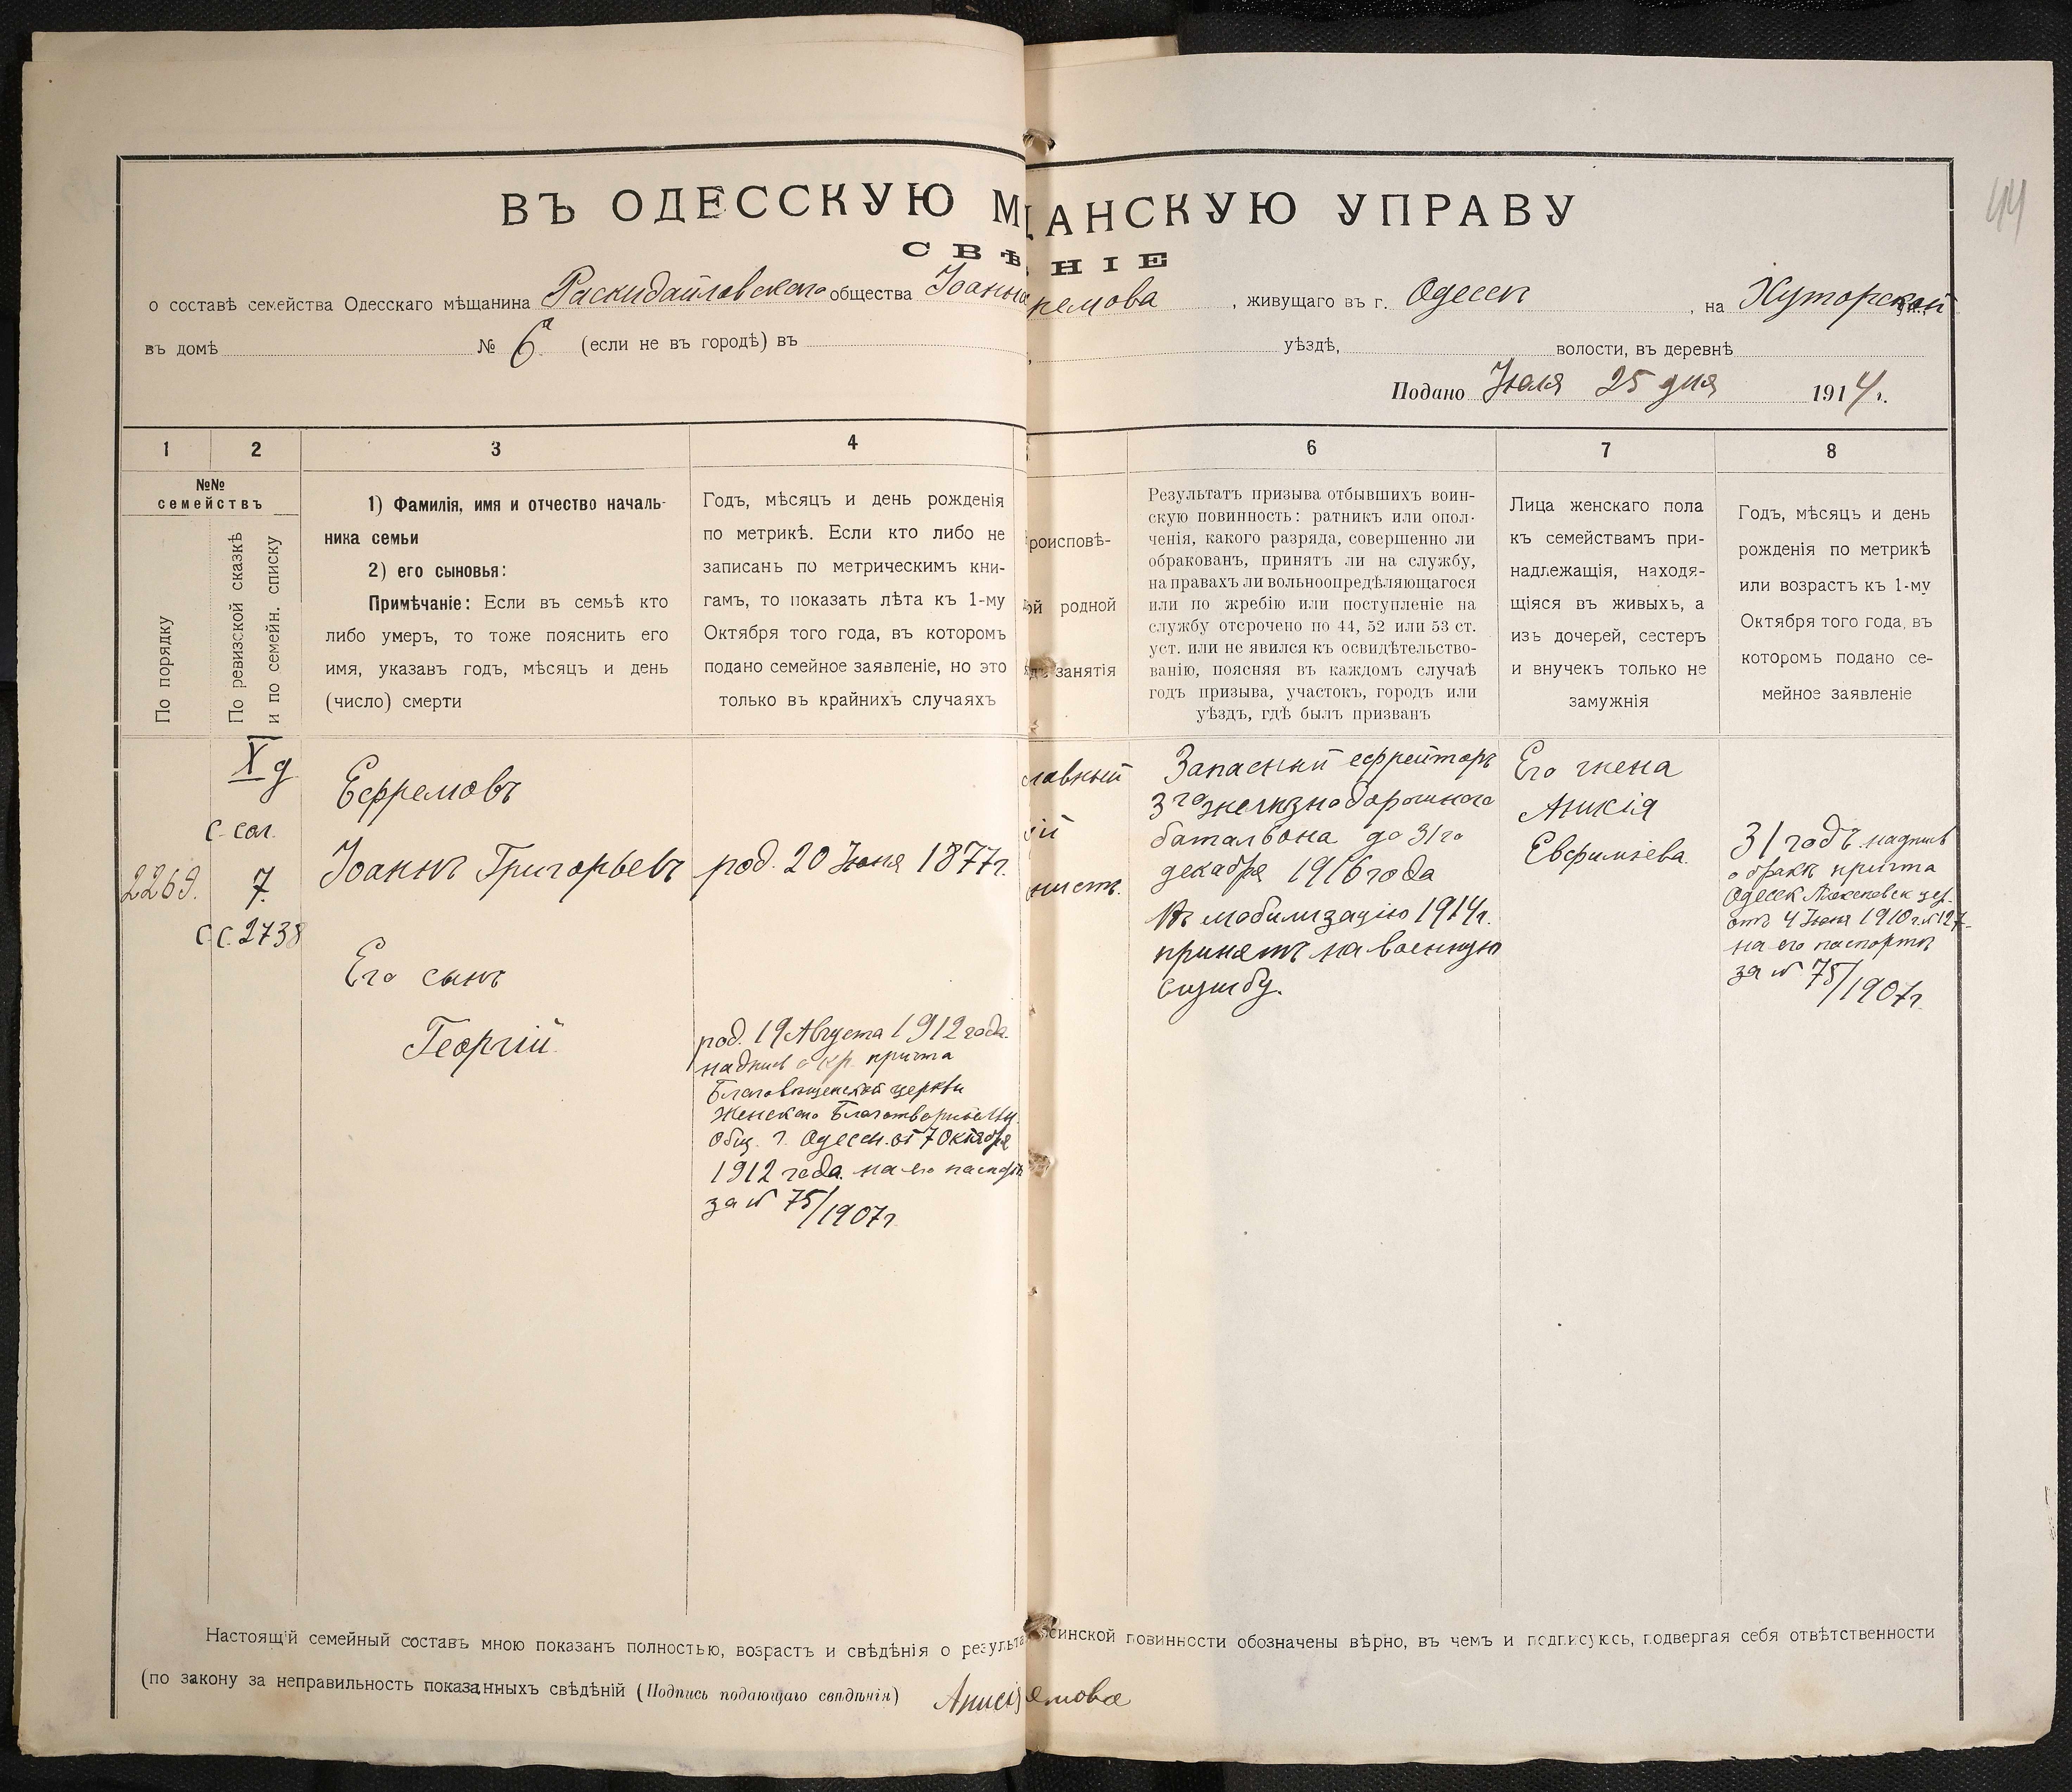 44
ВЪ ОДЕССКУЮ М ЩАНСКУЮ УПРАВУ
СВѢ НІЕ
о составѣ семейства Одесскаго мѣщанина Раскидайловскаго общества Іоанна ремова , живущаго въ г. Одессѣ , на Хуторской
въ домѣ № 6а (если не въ городѣ) въ уѣздѣ, волости, въ деревнѣ
Подано Іюля 25 дня 1914 г.
1 2 3 4 6 7 8
№№
семействъ
По порядку
По ревизской сказкѣ
и по семейн. списку
1) Фамилія, имя и отчество началь-
ника семьи
2) его сыновья:
Примѣчаніе: Если въ семьѣ кто
либо умеръ, то тоже пояснить его
имя, указавъ годъ, мѣсяцъ и день
(число) смерти
Годъ, мѣсяцъ и день рожденія
по метрикѣ. Если кто либо не
записанъ по метрическимъ кни-
гамъ, то показать лѣта къ 1-му
Октября того года, въ которомъ
подано семейное заявленіе, но это
только въ крайнихъ случаяхъ
роисповѣ-
ой родной
занятія
Результатъ призыва отбывшихъ воин-
скую повинность: ратникъ или опол-
ченія, какого разряда, совершенно ли
обракованъ, принятъ ли на службу,
на правахъ ли вольноопредѣляющагося
или по жребію или поступленіе на
службу отсрочено по 44, 52 или 53 ст.
уст. или не явился къ освидѣтельство-
ванію, поясняя въ каждомъ случаѣ
годъ призыва, участокъ, городъ или
уѣздъ, гдѣ былъ призванъ
Лица женскаго пола
къ семействамъ при-
надлежащія, находя-
щіяся въ живыхъ, а
изъ дочерей, сестеръ
и внучекъ только не
замужнія
Годъ, мѣсяцъ и день
рожденія по метрикѣ
или возрастъ къ 1-му
Октября того года, въ
которомъ подано се-
мейное заявленіе
2269.
X д
с. сог.
7.
С.С. 2738
Ефремовъ
Іоаннъ Григорьевъ
Его сынъ
Георгій
род. 20 Іюня 1877 г.
род. 19 Августа 1912 года.
надпись о кр. причта
Благовѣщенской церкви
Женскаго Благотворительн.
Общ. г. Одессы. от 7 Октября
1912 года. на его паспорт
за № 75/1907 г.
славный
ій
нистъ.
Запасный ефрейторъ
3го желѣзнодорожнаго
баталіона до 31го
декабря 1916 года
Въ мобилизацію 1914 г.
принятъ на военную
службу.
Его жена
Анисія
Евфиміева.
31 годъ надпись
о бракѣ причта
Одесск. цер.
отъ 4 Іюня 1910 г. № 127
на его паспортѣ
за № 75/1907 г.
Настоящій семейный составъ мною показанъ полностью, возрастъ и свѣдѣнія о результа оинской повинности обозначены вѣрно, въ чемъ и подписуюсь, подвергая себя отвѣтственности
(по закону за неправильность показанныхъ свѣдѣній (Подпись подающаго свѣдѣнія) Анисія емова